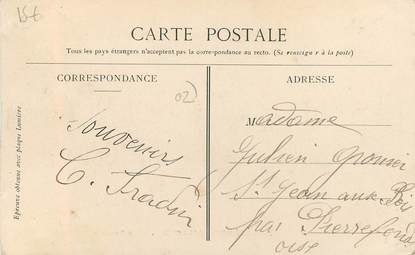 15€
CARTE POSTALE
Tous les pays étrangers n'acceptent pas la correspondance au recto. (Se renseign r à la poste)
CORRESPONDANCE
02)
Souvenirs
C. Fradin
Epreuve obtenue avec plaques Lumière
ADRESSE
Madame
Julien
St Jean aux Bois
par Pierrefonds
Oise